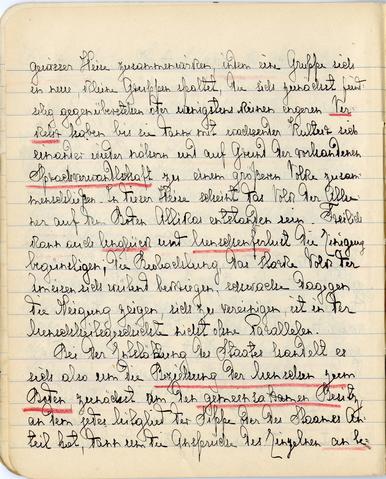 gewisser Weise zusammenwirken, indem eine Gruppe sich
in neue kleine Gruppen spaltet, die sich zunächst feind-
selig gegenüberstehen oder wenigstens keinen engeren Ver-
kehr haben bis sie dann mit wachsender Kultur sich
einander wieder nähern und auf Grund der vorhandenen
Sprachverwandtschaft zu einem größeren Volke zusam-
menschließen. In dieser Weise scheint das Volk der
auf dem Boden entstanden sein. Freilich
kann auch Unglück und Menschenfurcht die Neigung
begünstigen, die Beobachtung, das starke Volk der
sich während bekriegen, schwache dagegen
die Neigung zeigen, sich zu vereinigen, ist in der
Menschheitsgeschichte nicht ohne Parallelen.
Bei der Entstehung des Staates handelt es
sich also um die Beziehung der Menschen zum
Boden zunächst um den gemeinsamen Besitz,
an dem jedes Mitglied der Sippe oder des Stammes An-
teil hat, dann um die Ansprüche des Einzelnen an be-